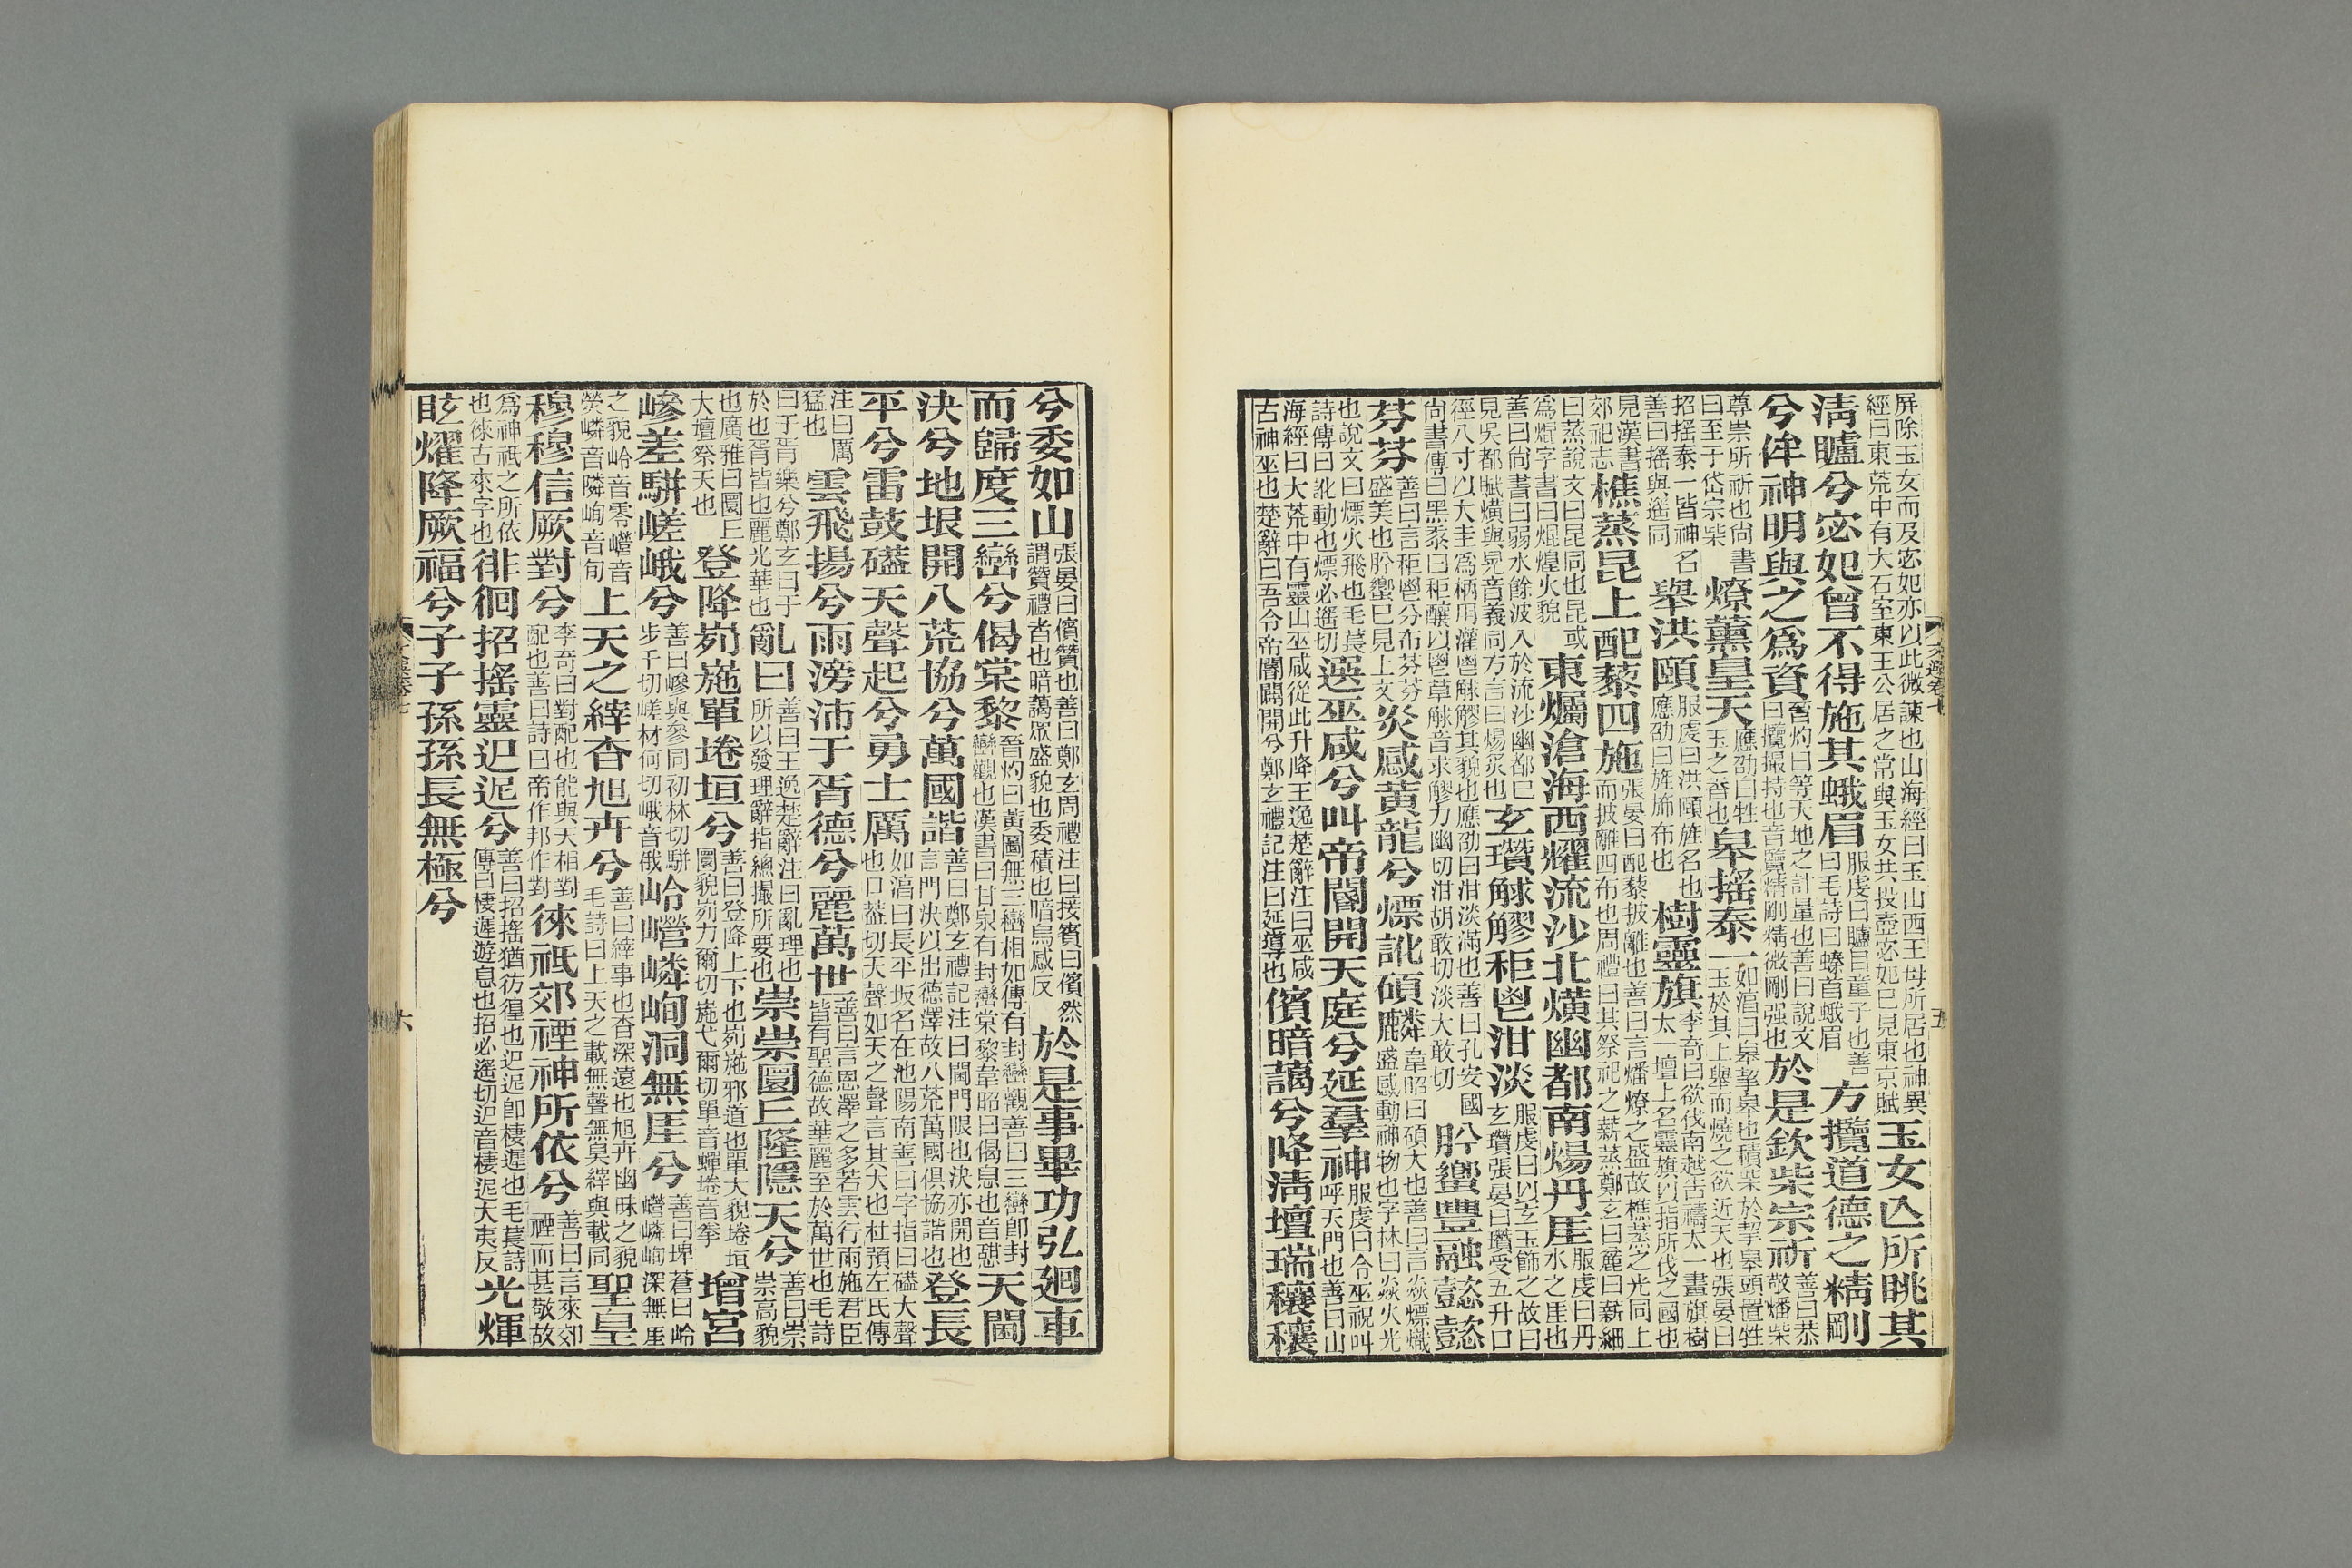 屏除玉女而及宓妃亦以此微諫也山海經曰玉山西王母所居也神異經曰東荒中有大石室東王公居之常與玉女共投壺宓妃巳見東京賦玉女亾所眺其
清矑兮宓妃曾不得施其蛾眉服虔曰矑目童子也善曰毛詩曰螓首蛾眉方攬道德之精剛
兮侔神明與之爲資晉灼曰等天地之計量也善曰說文曰攬撮持也音覽精剛精微剛强也於是欽柴宗祈善曰恭敬燔柴
尊崇所祈也尚書曰至于岱宗柴燎薰皇天應劭曰牲玉之香也皋搖泰一如淳曰皋挈皋也積柴於挈皋頭置牲玉於其上舉而燒之欲近天也張晏曰
招搖泰一皆神名善曰搖與遥同舉洪頤服虔曰洪頤旌名也應劭曰旌旆布也樹靈旗李奇曰欲伐南越告禱太一畫旗樹太一壇上名靈旗以指所伐之國也
見漢書郊祀志樵蒸昆上配藜四施張晏曰配藜披離也善曰言燔燎之盛故樵蒸之光同上而披離四布也周禮曰其祭祀之薪蒸鄭玄曰麤曰薪細
曰蒸說文曰昆同也昆或爲焜字書曰焜煌火貌東爥滄海西耀流沙北熿幽都南煬丹厓服虔曰丹水之厓也
善曰尚書曰弱水餘波入於流沙幽都巳見吳都賦熿與晃音義同方言曰煬炙也玄瓚觩䚧秬鬯泔淡服虔曰以玄玉飾之故曰玄瓚張晏曰瓚受五升口
徑八寸以大圭爲柄用灌鬯觩䚧其貌也應劭曰泔淡滿也善曰孔安國尚書傳曰黑黍曰秬釀以鬯草觩音求䚧力幽切泔胡敢切淡大敢切肸蠁豐融懿懿
芬芬善曰言秬鬯分布芬芬盛美也肸蠁巳見上文炎感黃龍兮熛訛碩麟韋昭曰碩大也善曰言焱熛熾盛感動神物也字林曰焱火光
也說文曰熛火飛也毛萇詩傳曰訛動也熛必遥切選巫咸兮叫帝閽開天庭兮延羣神服虔曰令巫祝叫呼天門也善曰山
海經曰大荒中有靈山巫咸從此升降王逸楚辭注曰巫咸古神巫也楚辭曰吾令帝閽闢開兮鄭玄禮記注曰延導也儐暗藹兮降清壇瑞穰穰
兮委如山張晏曰儐贊也善曰鄭玄周禮注曰接賓曰儐然謂贊禮者也暗藹眾盛貌也委積也暗烏感反於是事畢功弘廻車
而歸度三巒兮偈棠黎晉灼曰黃圖無三巒相如傳有封巒觀善曰三巒卽封巒觀也漢書曰甘泉有封巒棠黎韋昭曰偈息也音憩天閫
決兮地垠開八荒協兮萬國諧善曰鄭玄禮記注曰閫門限也決亦開也言門決以出德澤故八荒萬國俱協諧也登長
平兮雷鼓磕天聲起兮勇士厲如淳曰長平坂名在池陽南善曰字指曰磕大聲也口葢切天聲如天之聲言其大也杜預左氏傳
注曰厲猛也雲飛揚兮雨滂沛于胥德兮麗萬世善曰言恩澤之多若雲行雨施君臣皆有聖德故華麗至於萬世也毛詩
曰于胥樂兮鄭玄曰于於也胥皆也麗光華也亂曰善曰王逸楚辭注曰亂理也所以發理辭指總撮所要也崇崇圜丘隆隱天兮善曰崇崇高貌
也廣雅曰圜丘大壇祭天也登降峛崺單埢垣兮善曰登降上下也峛崺邪道也單大貌埢垣圜貌峛力爾切崺弋爾切單音蟬埢音拳增宮
㠁差駢嵯峨兮善曰㠁與參同初林切駢步千切嵯材何切峨音俄岭巆嶙峋洞無厓兮善曰埤蒼曰岭巆嶙峋深無厓
之貌岭音零巆音熒嶙音隣峋音旬上天之縡杳旭卉兮善曰縡事也杳深遠也旭卉幽昧之貌毛詩曰上天之載無聲無臭縡與載同聖皇
穆穆信厥對兮李奇曰對配也能與天相對配也善曰詩曰帝作邦作對徠祇郊禋神所依兮善曰言來郊禋而甚敬故
爲神祇之所依也徠古來字也徘徊招搖靈迉迡兮善曰招搖猶彷徨也迉迡卽棲遲也毛萇詩傳曰棲遲遊息也招必遥切迉音棲迡大夷反光輝
眩燿降厥福兮子子孫孫長無極兮
六